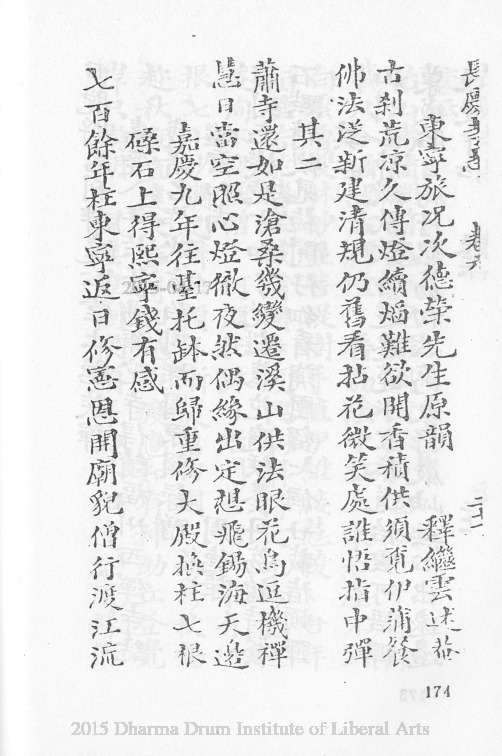 長慶寺志 卷六 二十一
東寧旅況次德榮先生原韻 釋繼雲述菴
古刹荒凉久傳燈續熖難欲開香積供須覓伊蒲餐
佛法從新建清規仍舊看拈花微笑處誰悟指中彈
其二
蕭寺還如是滄桑幾變遷溪山供法眼花鳥逗機禪
慧日當空照心燈徹夜然偶緣出定想飛錫海天邊
嘉慶九年往基托鉢而歸重修大殿換柱七根
磉石上得熙寧錢有感
七百餘年柱東寧返日修憲恩開廟貌僧行渡江流
174
2015 Dharma Drum Institute of Liberal Arts